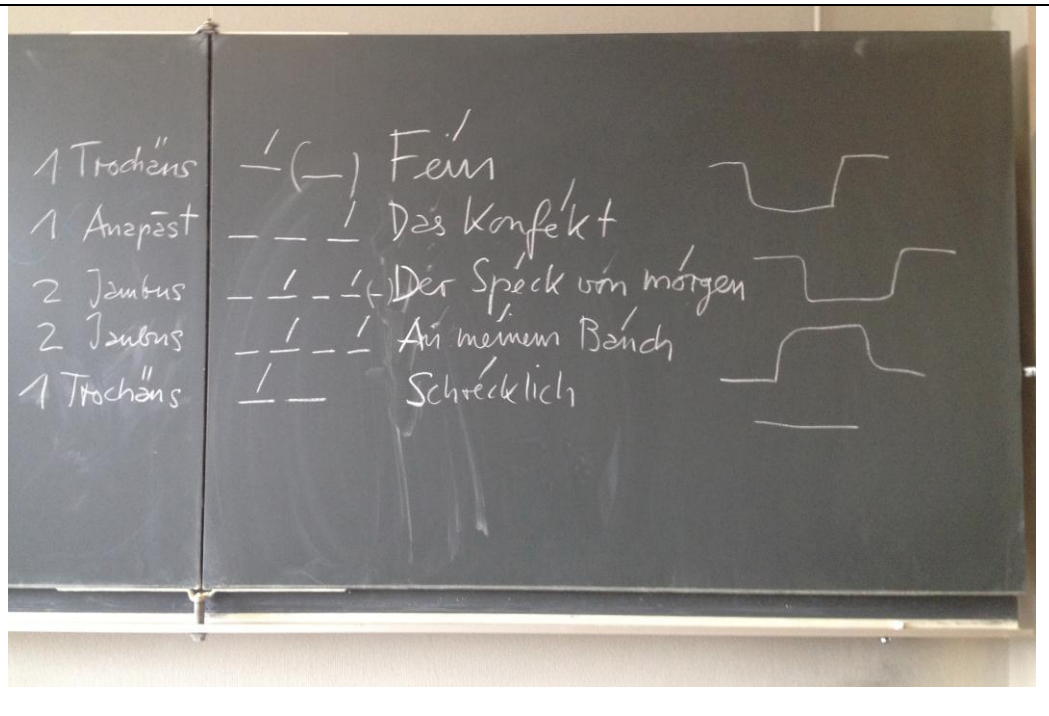 1 Trochäus –́ (–) Féin
1 Anapäst – – –́ Das Konfékt
2 Jambus – –́ – –́ (–) Der Spéck von mórgen
2 Jambus – –́ – –́ An méinem Báuch
1 Trochäus –́ – Schrécklich